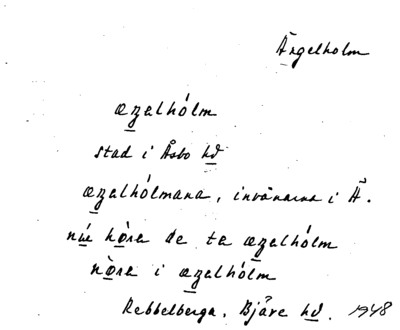 Ängelholm
æzelhólm
stad i Åsbo hd
æzelhólmana, invånarna i Ä.
níe høra de ta æzelhólm
nøra i æzelhólm
Rebbelberga, Bjäre hd. 1948